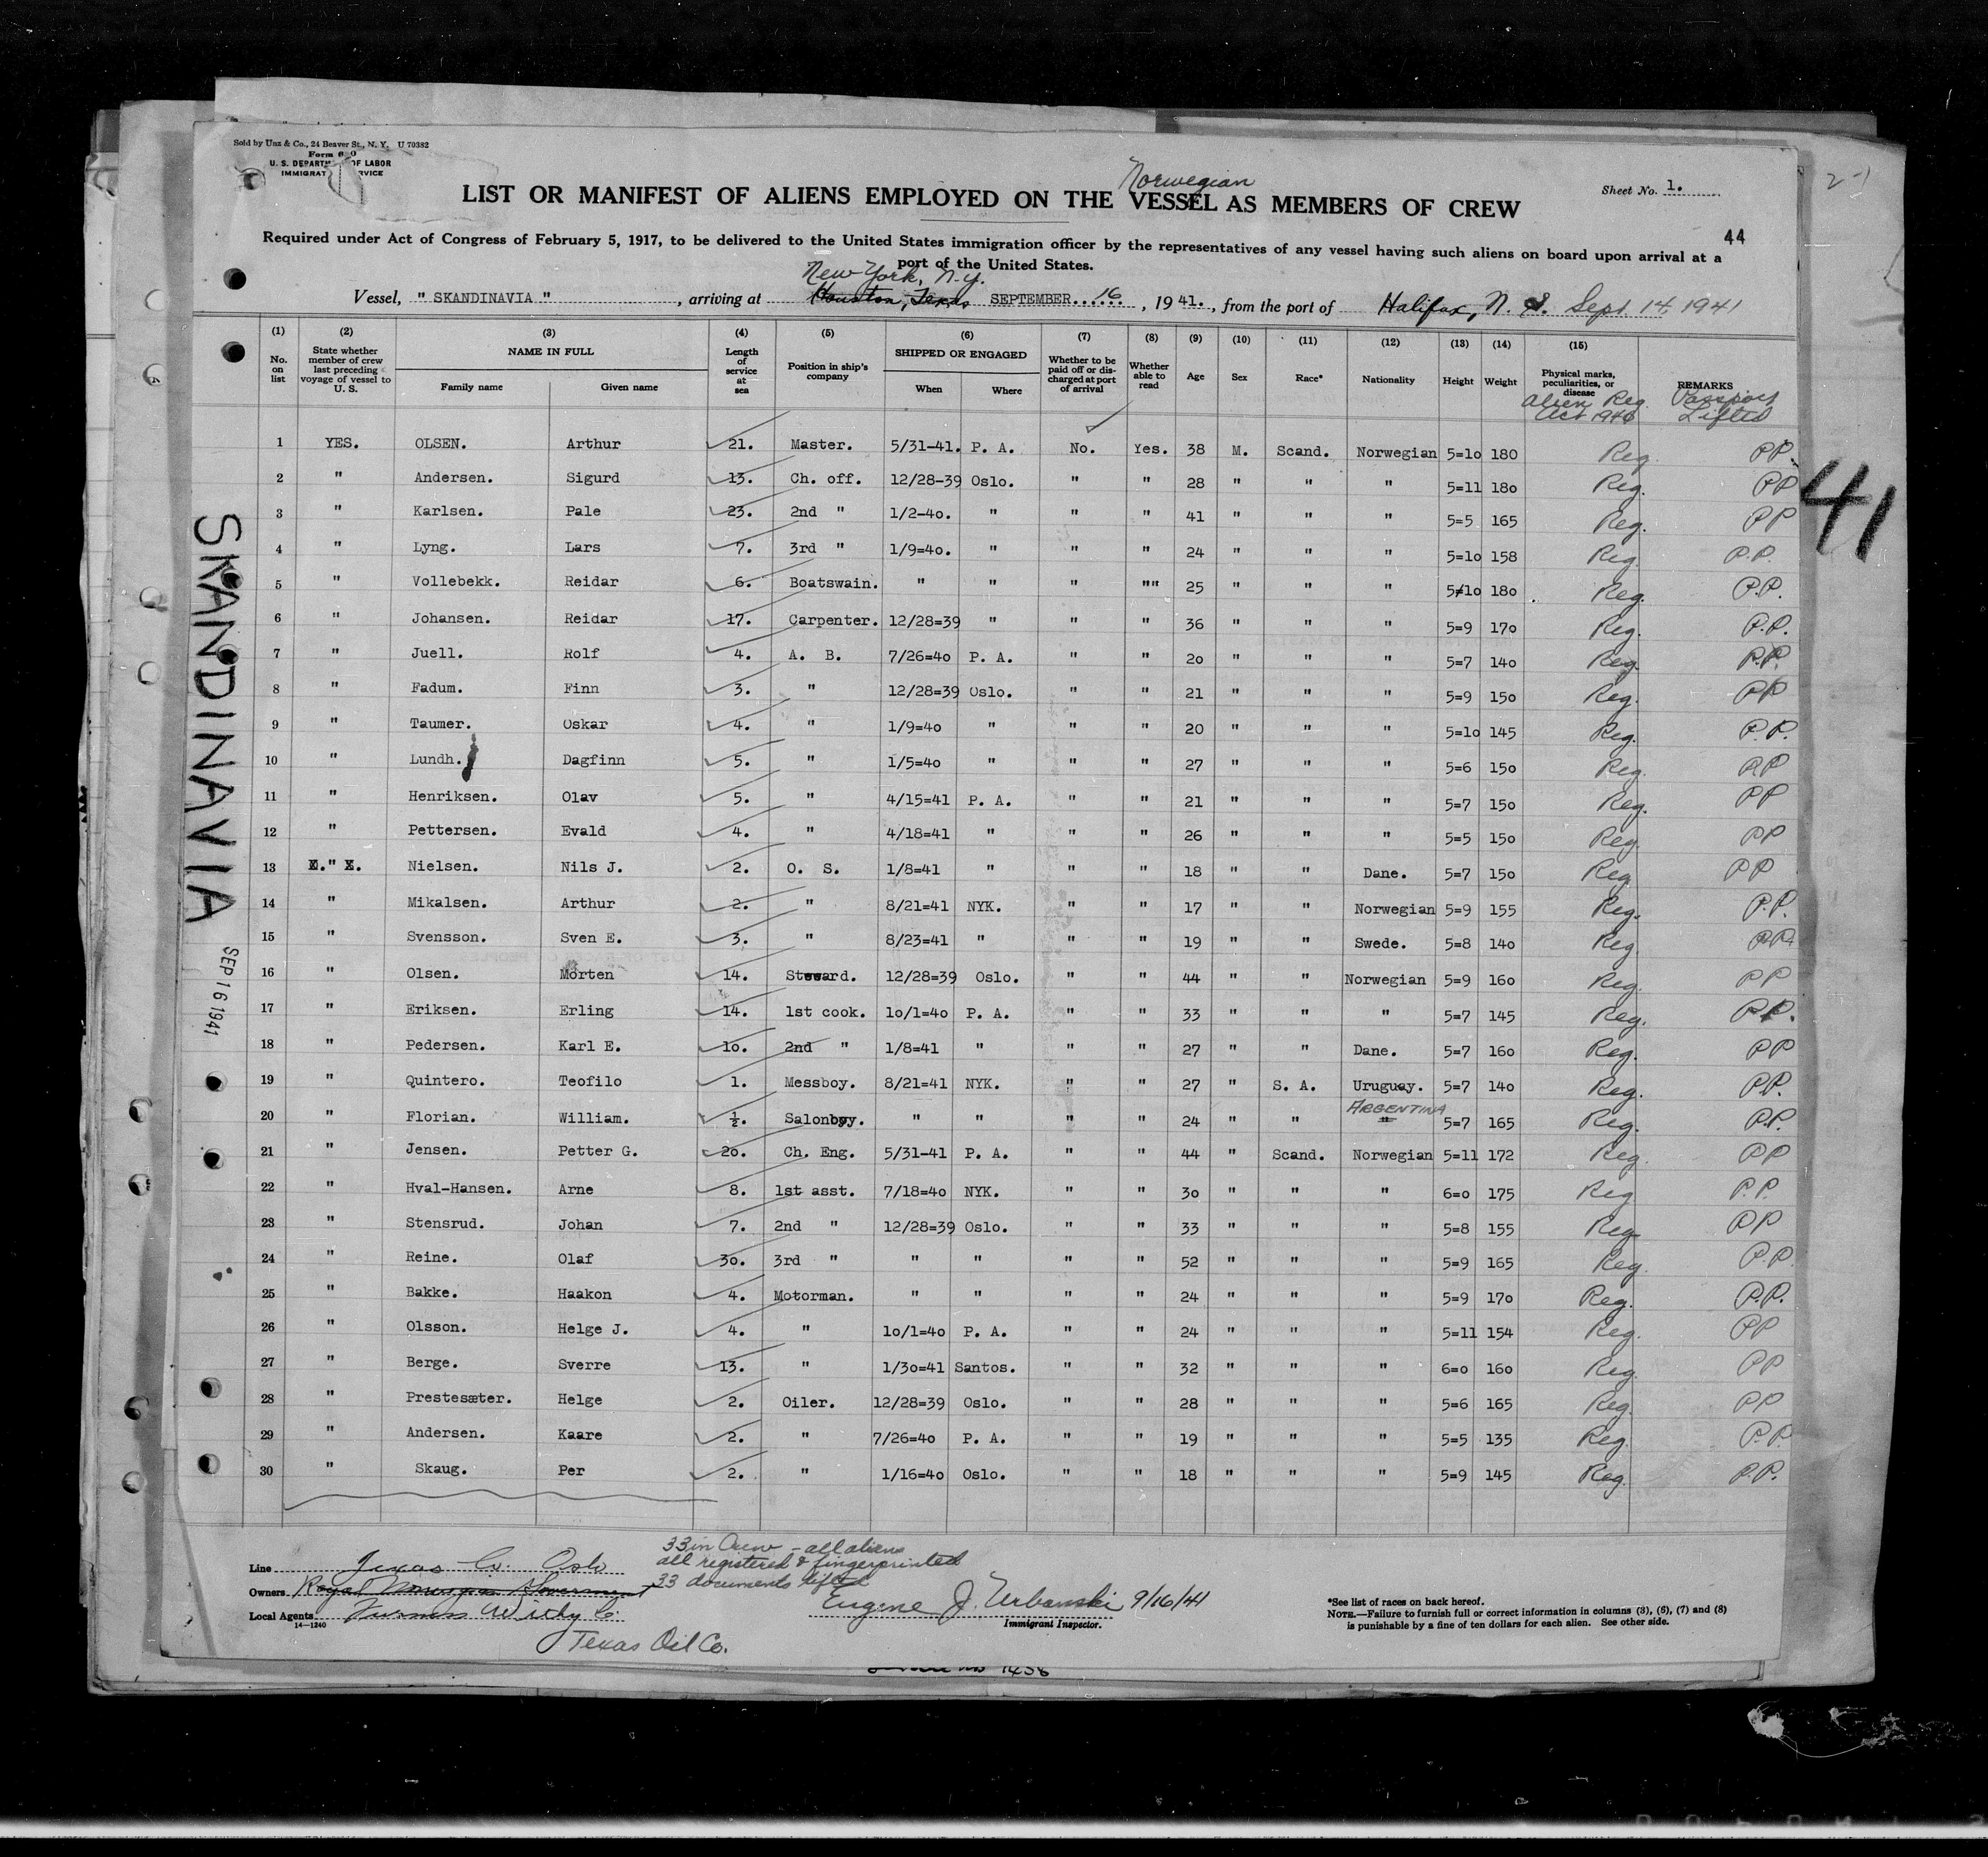 Sold by Unz & Co., 24 Beaver St., N. Y. U 70382
U. S. DEPARTM OF LABOR
IMMIGRAT RVICE
Norwegian
LIST OR MANIFEST OF ALIENS EMPLOYED ON THE VESSEL AS MEMBERS OF CREW
Sheet No. 1.
2-1
44
Required under Act of Congress of February 5, 1917, to be delivered to the United States immigration officer by the representatives of any vessel having such aliens on board upon arrival at a
port of the United States.
New York, N.Y.
Vessel, " SKANDINAVIA " , arriving at Houston, Texas SEPTEMBER 16 , 19 41. , from the port of Halifax, N. S. Sept. 14, 1941
(1) (2) (3) (4) (5) (6) (7) (8) (9) (10) (11) (12) (13) (14) (15)
No. on list State whether member of crew last preceding voyage of vessel to U. S. NAME IN FULL Family name Given name Length of service at sea Position in ship's company SHIPPED OR ENGAGED When Where Whether to be paid off or discharged at port of arrival Whether able to read Age Sex Race* Nationality Height Weight Physical marks, peculiarities, or disease REMARKS
Alien Reg. Act 1940 Passport Lifted
1 YES. OLSEN. Arthur 21. Master. 5/31-41. P. A. No. Yes. 38 M. Scand. Norwegian 5=10 180 Reg. PP.
2 " Andersen. Sigurd 13. Ch. off. 12/28-39 Oslo. " " 28 " " " 5=11 180 Reg. PP
3 " Karlsen. Pale 23. 2nd " 1/2-40. " " " 41 " " " 5=5 165 Reg. PP
4 " Lyng. Lars 7. 3rd " 1/9=40. " " " 24 " " " 5=10 158 Reg. P.P.
5 " Vollebekk. Reidar 6. Boatswain. " " " "" 25 " " " 5=10 180 Reg. P.P.
6 " Johansen. Reidar 17. Carpenter. 12/28=39 " " " 36 " " " 5=9 170 Reg. P.P.
7 " Juell. Rolf 4. A. B. 7/26=40 P. A. " " 20 " " " 5=7 140 Reg. P.P.
8 " Fadum. Finn 3. " 12/28=39 Oslo. " " 21 " " " 5=9 150 Reg. PP
9 " Taumer. Oskar 4. " 1/9=40 " " " 20 " " " 5=10 145 Reg. P.P.
10 " Lundh. Dagfinn 5. " 1/5=40 " " " 27 " " " 5=6 150 Reg. PP
11 " Henriksen. Olav 5. " 4/15=41 P. A. " " 21 " " " 5=7 150 Reg. PP
12 " Pettersen. Evald 4. " 4/18=41 " " " 26 " " " 5=5 150 Reg. PP
13 " Nielsen. Nils J. 2. O. S. 1/8=41 " " " 18 " " Dane. 5=7 150 Reg. PP
14 " Mikalsen. Arthur 2. " 8/21=41 NYK. " " 17 " " Norwegian 5=9 155 Reg. P.P.
15 " Svensson. Sven E. 3. " 8/23=41 " " " 19 " " Swede. 5=8 140 Reg. PP
16 " Olsen. Morten 14. Steward. 12/28=39 Oslo. " " 44 " " Norwegian 5=9 160 Reg. PP
17 " Eriksen. Erling 14. 1st cook. 10/1=40 P. A. " " 33 " " " 5=7 145 Reg. P.P.
18 " Pedersen. Karl E. 10. 2nd " 1/8=41 " " " 27 " " Dane. 5=7 160 Reg. PP
19 " Quintero. Teofilo 1. Messboy. 8/21=41 NYK. " " 27 " S. A. Uruguay. 5=7 140 Reg. P.P.
20 " Florian. William. ½. Salonboy. " " " " 24 " " ARGENTINA " 5=7 165 Reg. P.P.
21 " Jensen. Petter G. 20. Ch. Eng. 5/31-41 P. A. " " 44 " Scand. Norwegian 5=11 172 Reg. PP
22 " Hval-Hansen. Arne 8. 1st asst. 7/18=40 NYK. " " 30 " " " 6=0 175 Reg P.P.
23 " Stensrud. Johan 7. 2nd " 12/28=39 Oslo. " " 33 " " " 5=8 155 Reg. PP
24 " Reine. Olaf 30. 3rd " " " " " 52 " " " 5=9 165 Reg. P.P.
25 " Bakke. Haakon 4. Motorman. " " " " 24 " " " 5=9 170 Reg. P.P.
26 " Olsson. Helge J. 4. " 10/1=40 P. A. " " 24 " " " 5=11 154 Reg. PP
27 " Berge. Sverre 13. " 1/30=41 Santos. " " 32 " " " 6=0 160 Reg. PP
28 " Prestesæter. Helge 2. Oiler. 12/28=39 Oslo. " " 28 " " " 5=6 165 Reg. PP
29 " Andersen. Kaare 2. " 7/26=40 P. A. " " 19 " " " 5=5 135 Reg. P.P.
30 " Skaug. Per 2. " 1/16=40 Oslo. " " 18 " " " 5=9 145 Reg. P.P.
41
SKANDINAVIA
SEP 16 1941
33 in Crew - all aliens
all registered & fingerprinted
33 documents lifted
Line Texas Co. Oslo
Owners Royal Norwegian Government
Local Agents Furness Withy Co.
14-1240
Texas Oil Co.
Eugene J. Urbanski 9/16/41
Immigrant Inspector.
*See list of races on back hereof.
NOTE.—Failure to furnish full or correct information in columns (3), (6), (7) and (8)
is punishable by a fine of ten dollars for each alien. See other side.